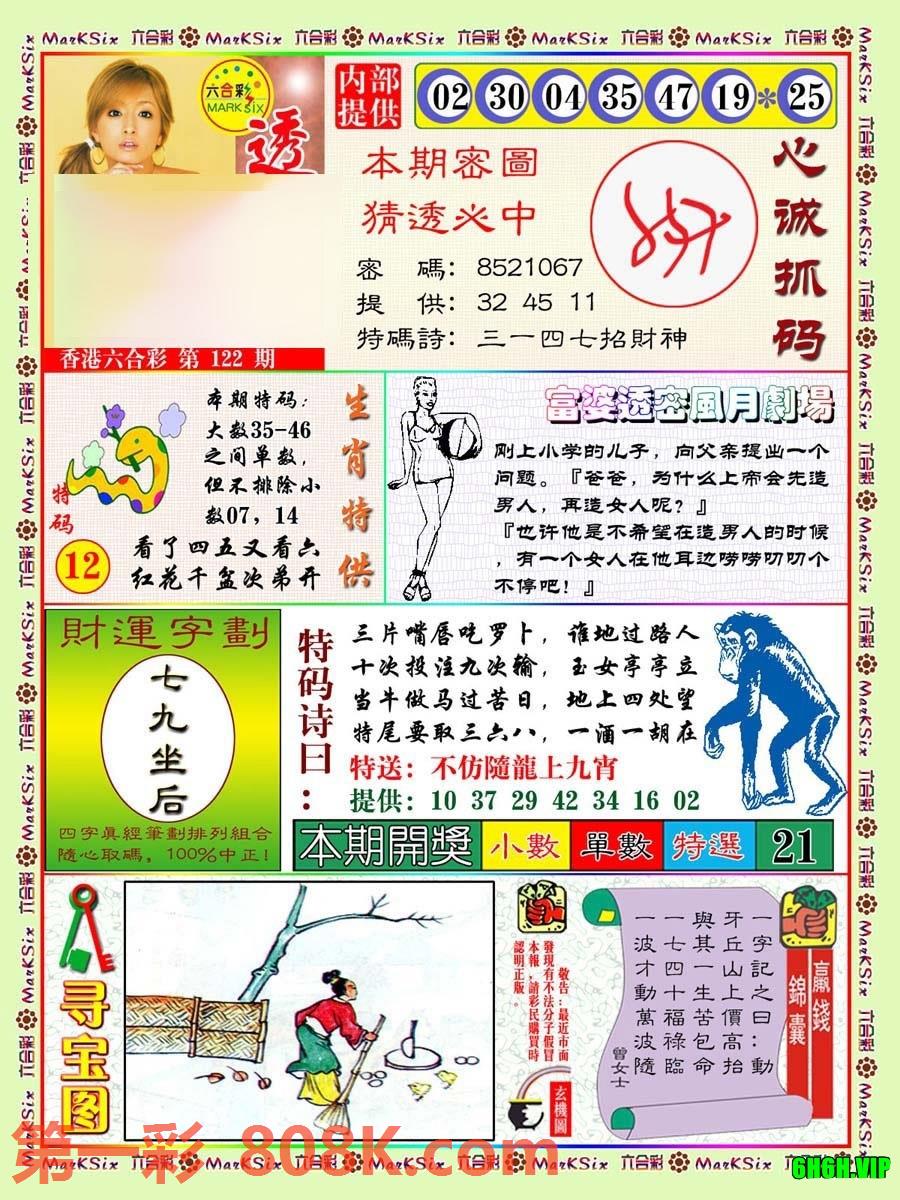 MarKSix 六合彩 MarKSix 六合彩 MarKSix 六合彩 MarKSix 六合彩 MarKSix 六合彩 MarKSix 六合彩
六合彩
MARK SIX
透
内部
提供
02 30 04 35 47 19 * 25
本期密圖
猜透必中
密 碼: 8521067
提 供: 32 45 11
特碼詩: 三一四七招財神
心诚抓码
香港六合彩 第 122 期
特码
12
本期特码:
大数35-46
之间单数,
但不排除小
数07,14
看了四五又看六
红花千盆次弟开
生肖特供
富婆透密風月劇場
刚上小学的儿子,向父亲提出一个
问题。『爸爸,为什么上帝会先造
男人,再造女人呢?』
『也许他是不希望在造男人的时候
,有一个女人在他耳边唠唠叨叨个
不停吧!』
財運字劃
七九坐后
四字真經筆劃排列組合
隨心取碼,100%中正!
特码诗曰:
三片嘴唇吃罗卜,谁地过路人
十次投注九次输,玉女亭亭立
当牛做马过苦日,地上四处望
特尾要取三六八,一酒一胡在
特送:不仿隨龍上九宵
提供:10 37 29 42 34 16 02
本期開獎 小數 單數 特選 21
寻宝图
敬告:最近市面
發現有不法分子假冒
本報,請彩民購買時
認明正版。
玄機圖
一字記之曰:動
牙丘山上價高抬
與其一生苦包命
一七四十福祿臨
一波才動萬波隨
曾女士
贏錢
錦囊
第一彩 808K.com
MarKSix 六合彩 MarKSix 六合彩 MarKSix 六合彩 MarKSix 六合彩 MarKSix 六合彩 MarKSix
6H6H.VIP